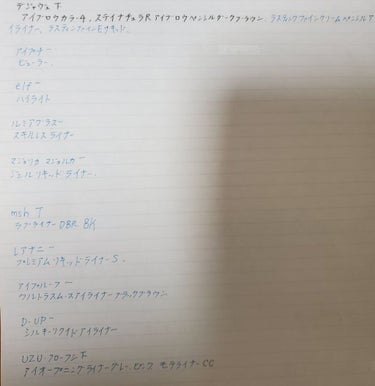 デジャヴュ下
アイブロウカラー4、ステイナチュラRアイブロウペンシルダークブラウン、ラスティンファインクリームペンシルア
イライナー、ラスティンファインEリキッド、
アイプチー
ビューラー、
elfー
ハイライト
ルミアグラスー
スキルレスライナー
マジョリカ マジョルカー
ジェルリキッドライナー、
msh T
ラブライナー DBR BK
Lアナニー
プレミアムリキッドライナーS、
アイブループー
ウルトラスムースアイライナーブラックブラウン
D-UPー
シルキーリクイドアイライナー
UZUフローフシ下
アイオープニングライナーグレー、ピンク モテライナーCC